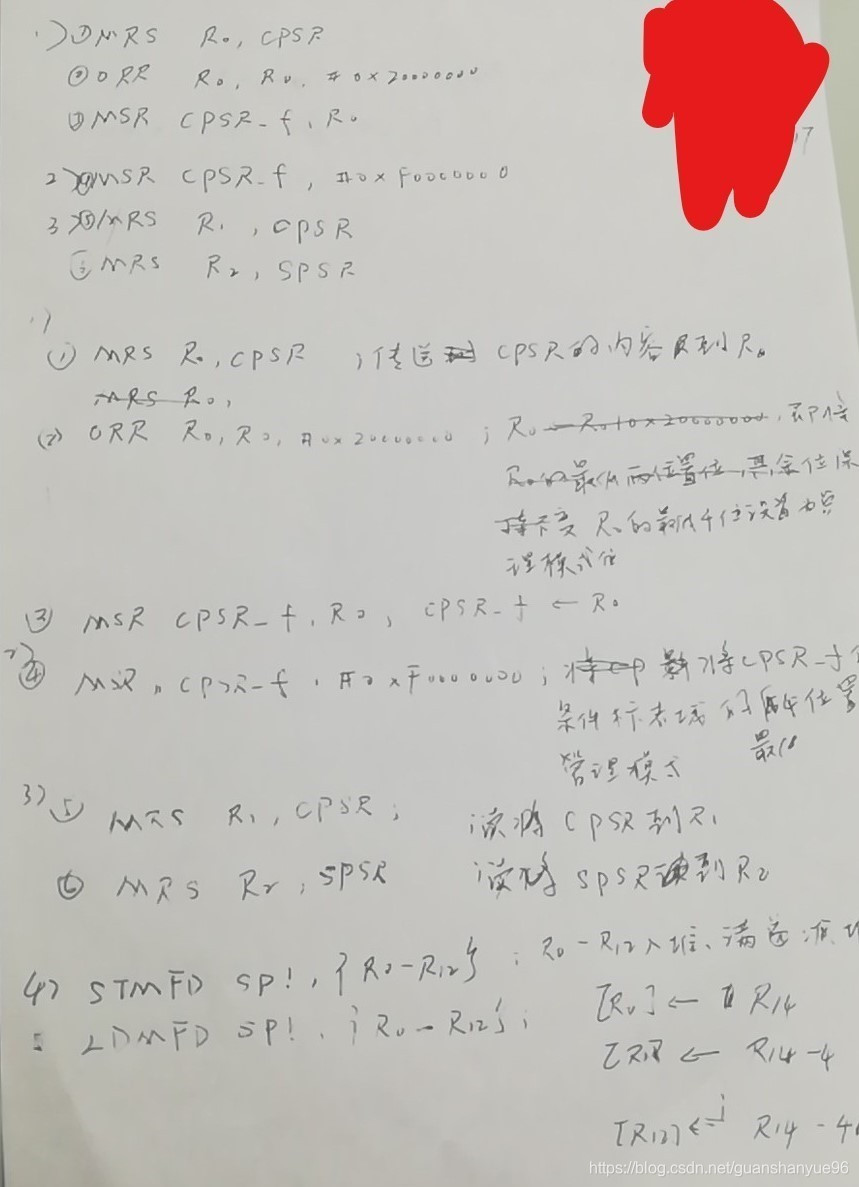 1) ① MRS R0, CPSR
② ORR R0, R0, #0x20000000
③ MSR CPSR_f, R0
2) ④ MSR CPSR_f, #0xF0000000
3) ⑤ MRS R1, CPSR
⑥ MRS R2, SPSR
17
1)
① MRS R0, CPSR ;传送 CPSR的内容到R0
MRS R0,
(2) ORR R0, R0, #0x20000000 ; R0 ← R0|0x20000000, 即将
R0的最低两位置位,其余位保
持不变 R0的最低位设置为管
理模式位
③ MSR CPSR_f, R0 ; CPSR_f ← R0
2)
④ MSR, CPSR_f, #0xF0000000 ; 将CPSR_f
条件标志域的 位置
最低
管理模式
3) ⑤ MRS R1, CPSR ; ;读将CPSR到R1
⑥ MRS R2, SPSR ;读将SPSR到R2
4) STMFD SP!, {R0-R12} ; R0-R12入堆、满递
LDMFD SP!, {R0-R12} ;
[R0] ← R14
[R1] ← R14-4
[R12] ← R14-4
https://blog.csdn.net/guanshanyue96